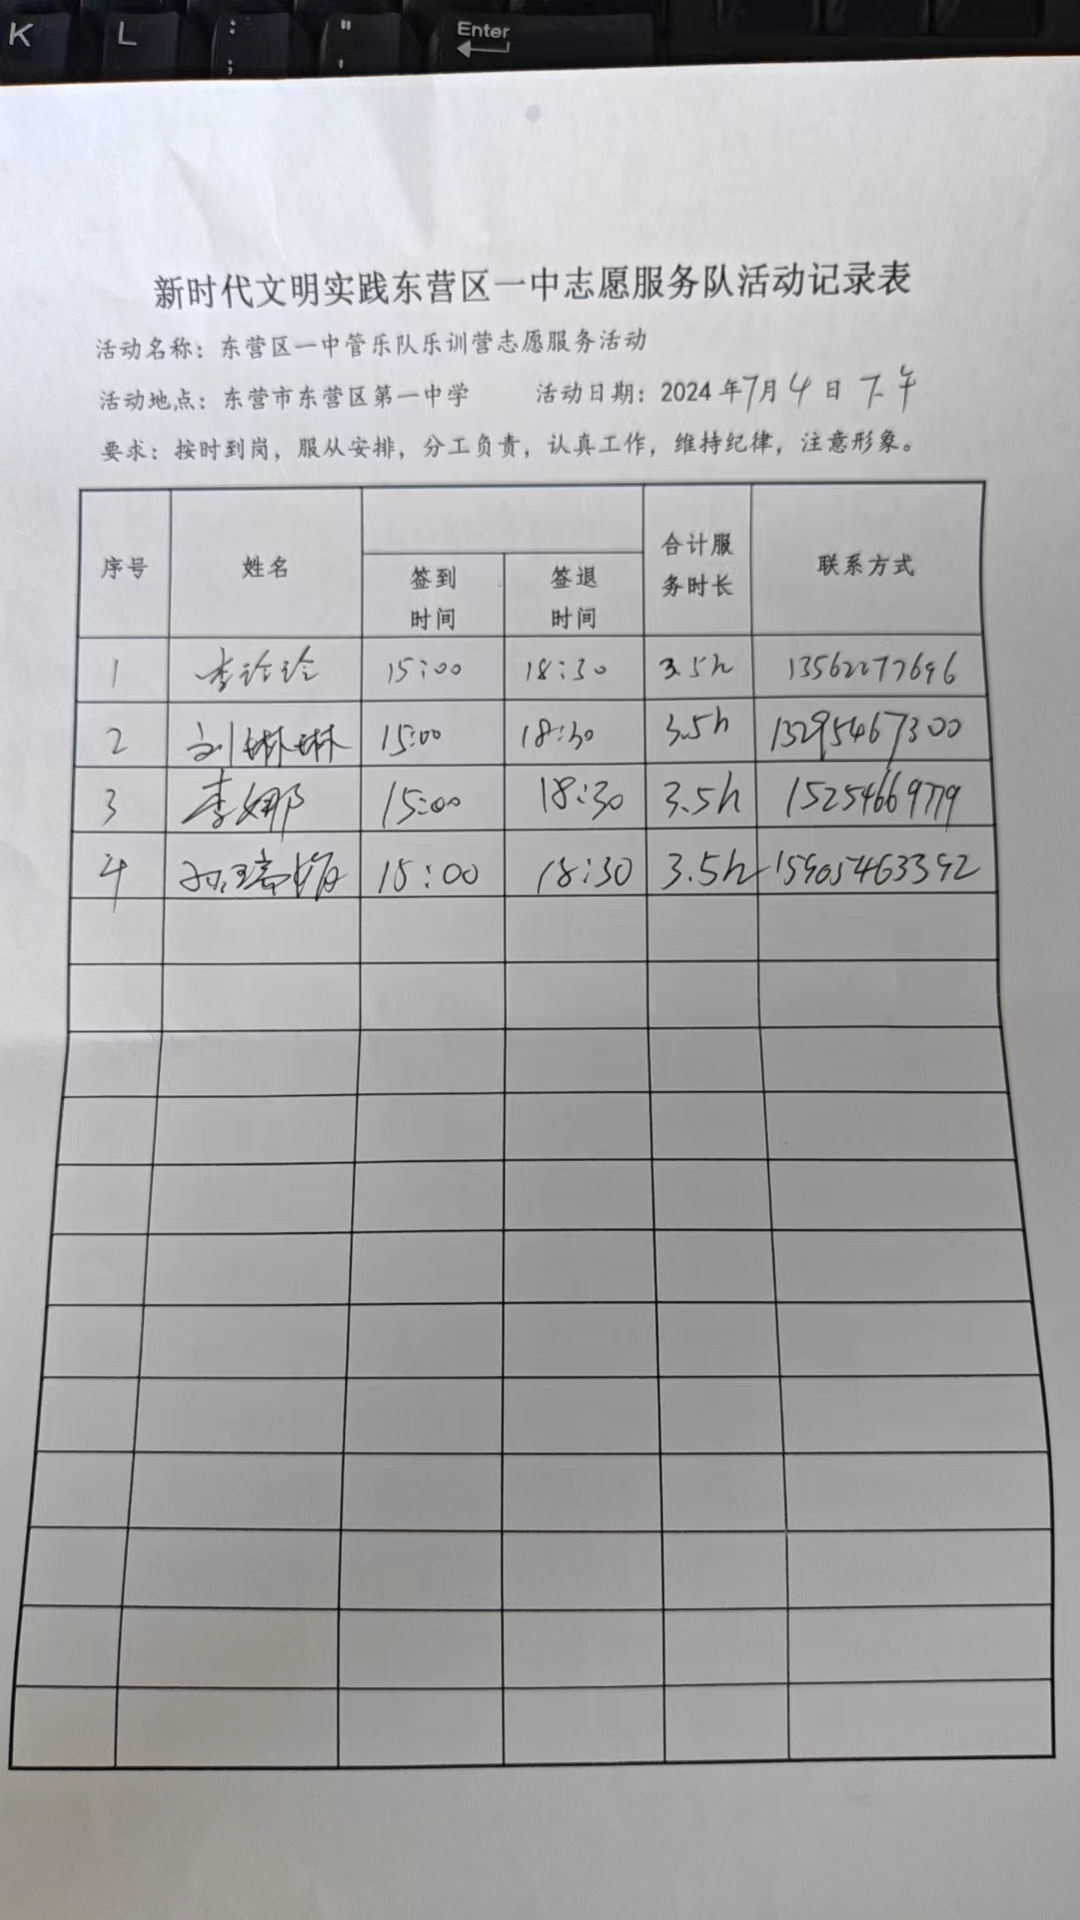 K L : ; " ' Enter
新时代文明实践东营区一中志愿服务队活动记录表
活动名称：东营区一中管乐队乐训营志愿服务活动
活动地点：东营市东营区第一中学 活动日期：2024年7月4日 下午
要求：按时到岗，服从安排，分工负责，认真工作，维持纪律，注意形象。
序号 姓名 签到时间 签退时间 合计服务时长 联系方式
1 李 15:00 18:30 3.5h 13562277696
2 刘琳琳 15:00 18:30 3.5h 13295467300
3 李娜 15:00 18:30 3.5h 15254669779
4 15:00 18:30 3.5h 15905463392